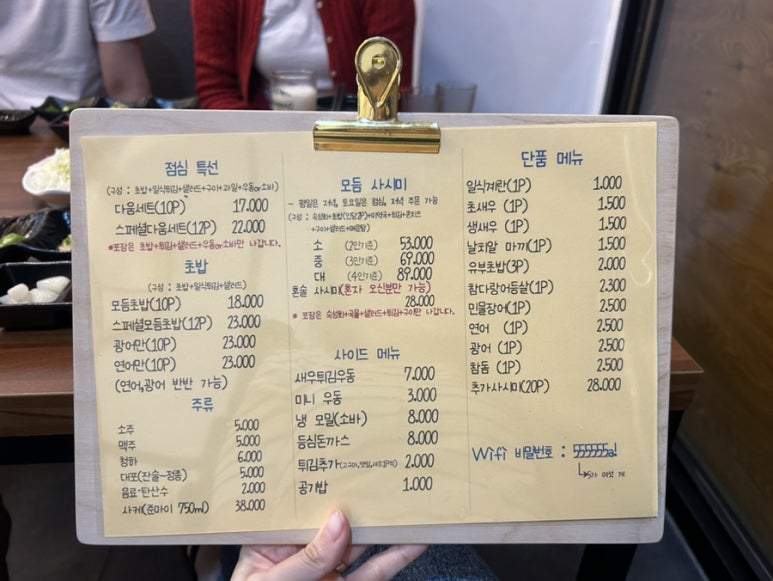 점심 특선
(구성 : 초밥+일식튀김+샐러드+구이+과일+우동or소바)
다움세트(10P) 17.000
스페셜다움세트(12P) 22.000
*포장은 초밥+튀김+샐러드+우동or소바만 나갑니다.
초밥
(구성 : 초밥+일식튀김+샐러드)
모듬초밥(10P) 18.000
스페셜모듬초밥(12P) 23.000
광어만(10P) 23.000
연어만(10P) 23.000
(연어,광어 반반 가능)
주류
소주 5.000
맥주 5.000
청하 6.000
대포(잔술-정종) 5.000
음료·탄산수 2.000
사케(준마이 750ml) 38.000
모듬 사시미
- 평일은 저녁, 토요일은 점심, 저녁 주문 가능
(구성 : 숙성회+초밥(인당2P)+미역국+튀김+콘치즈
+구이+샐러드+매운탕)
소 (2인기준) 53.000
중 (3인기준) 69.000
대 (4인기준) 89.000
혼술 사시미(혼자 오신분만 가능)
28.000
* 포장은 숙성회+국물+샐러드+튀김+구이만 나갑니다.
사이드 메뉴
새우튀김우동 7.000
미니 우동 3.000
냉 모밀(소바) 8.000
등심돈까스 8.000
튀김추가(고구마,깻잎,새우1P씩) 2.000
공기밥 1.000
단품 메뉴
일식계란(1P) 1.000
초새우 (1P) 1.500
생새우 (1P) 1.500
날치알 마끼(1P) 1.500
유부초밥(3P) 2.000
참다랑어등살(1P) 2.300
민물장어(1P) 2.500
연어 (1P) 2.500
광어 (1P) 2.500
참돔 (1P) 2.500
추가사시미(20P) 28.000
Wifi 비밀번호 : 555555a!
5가 여섯 개